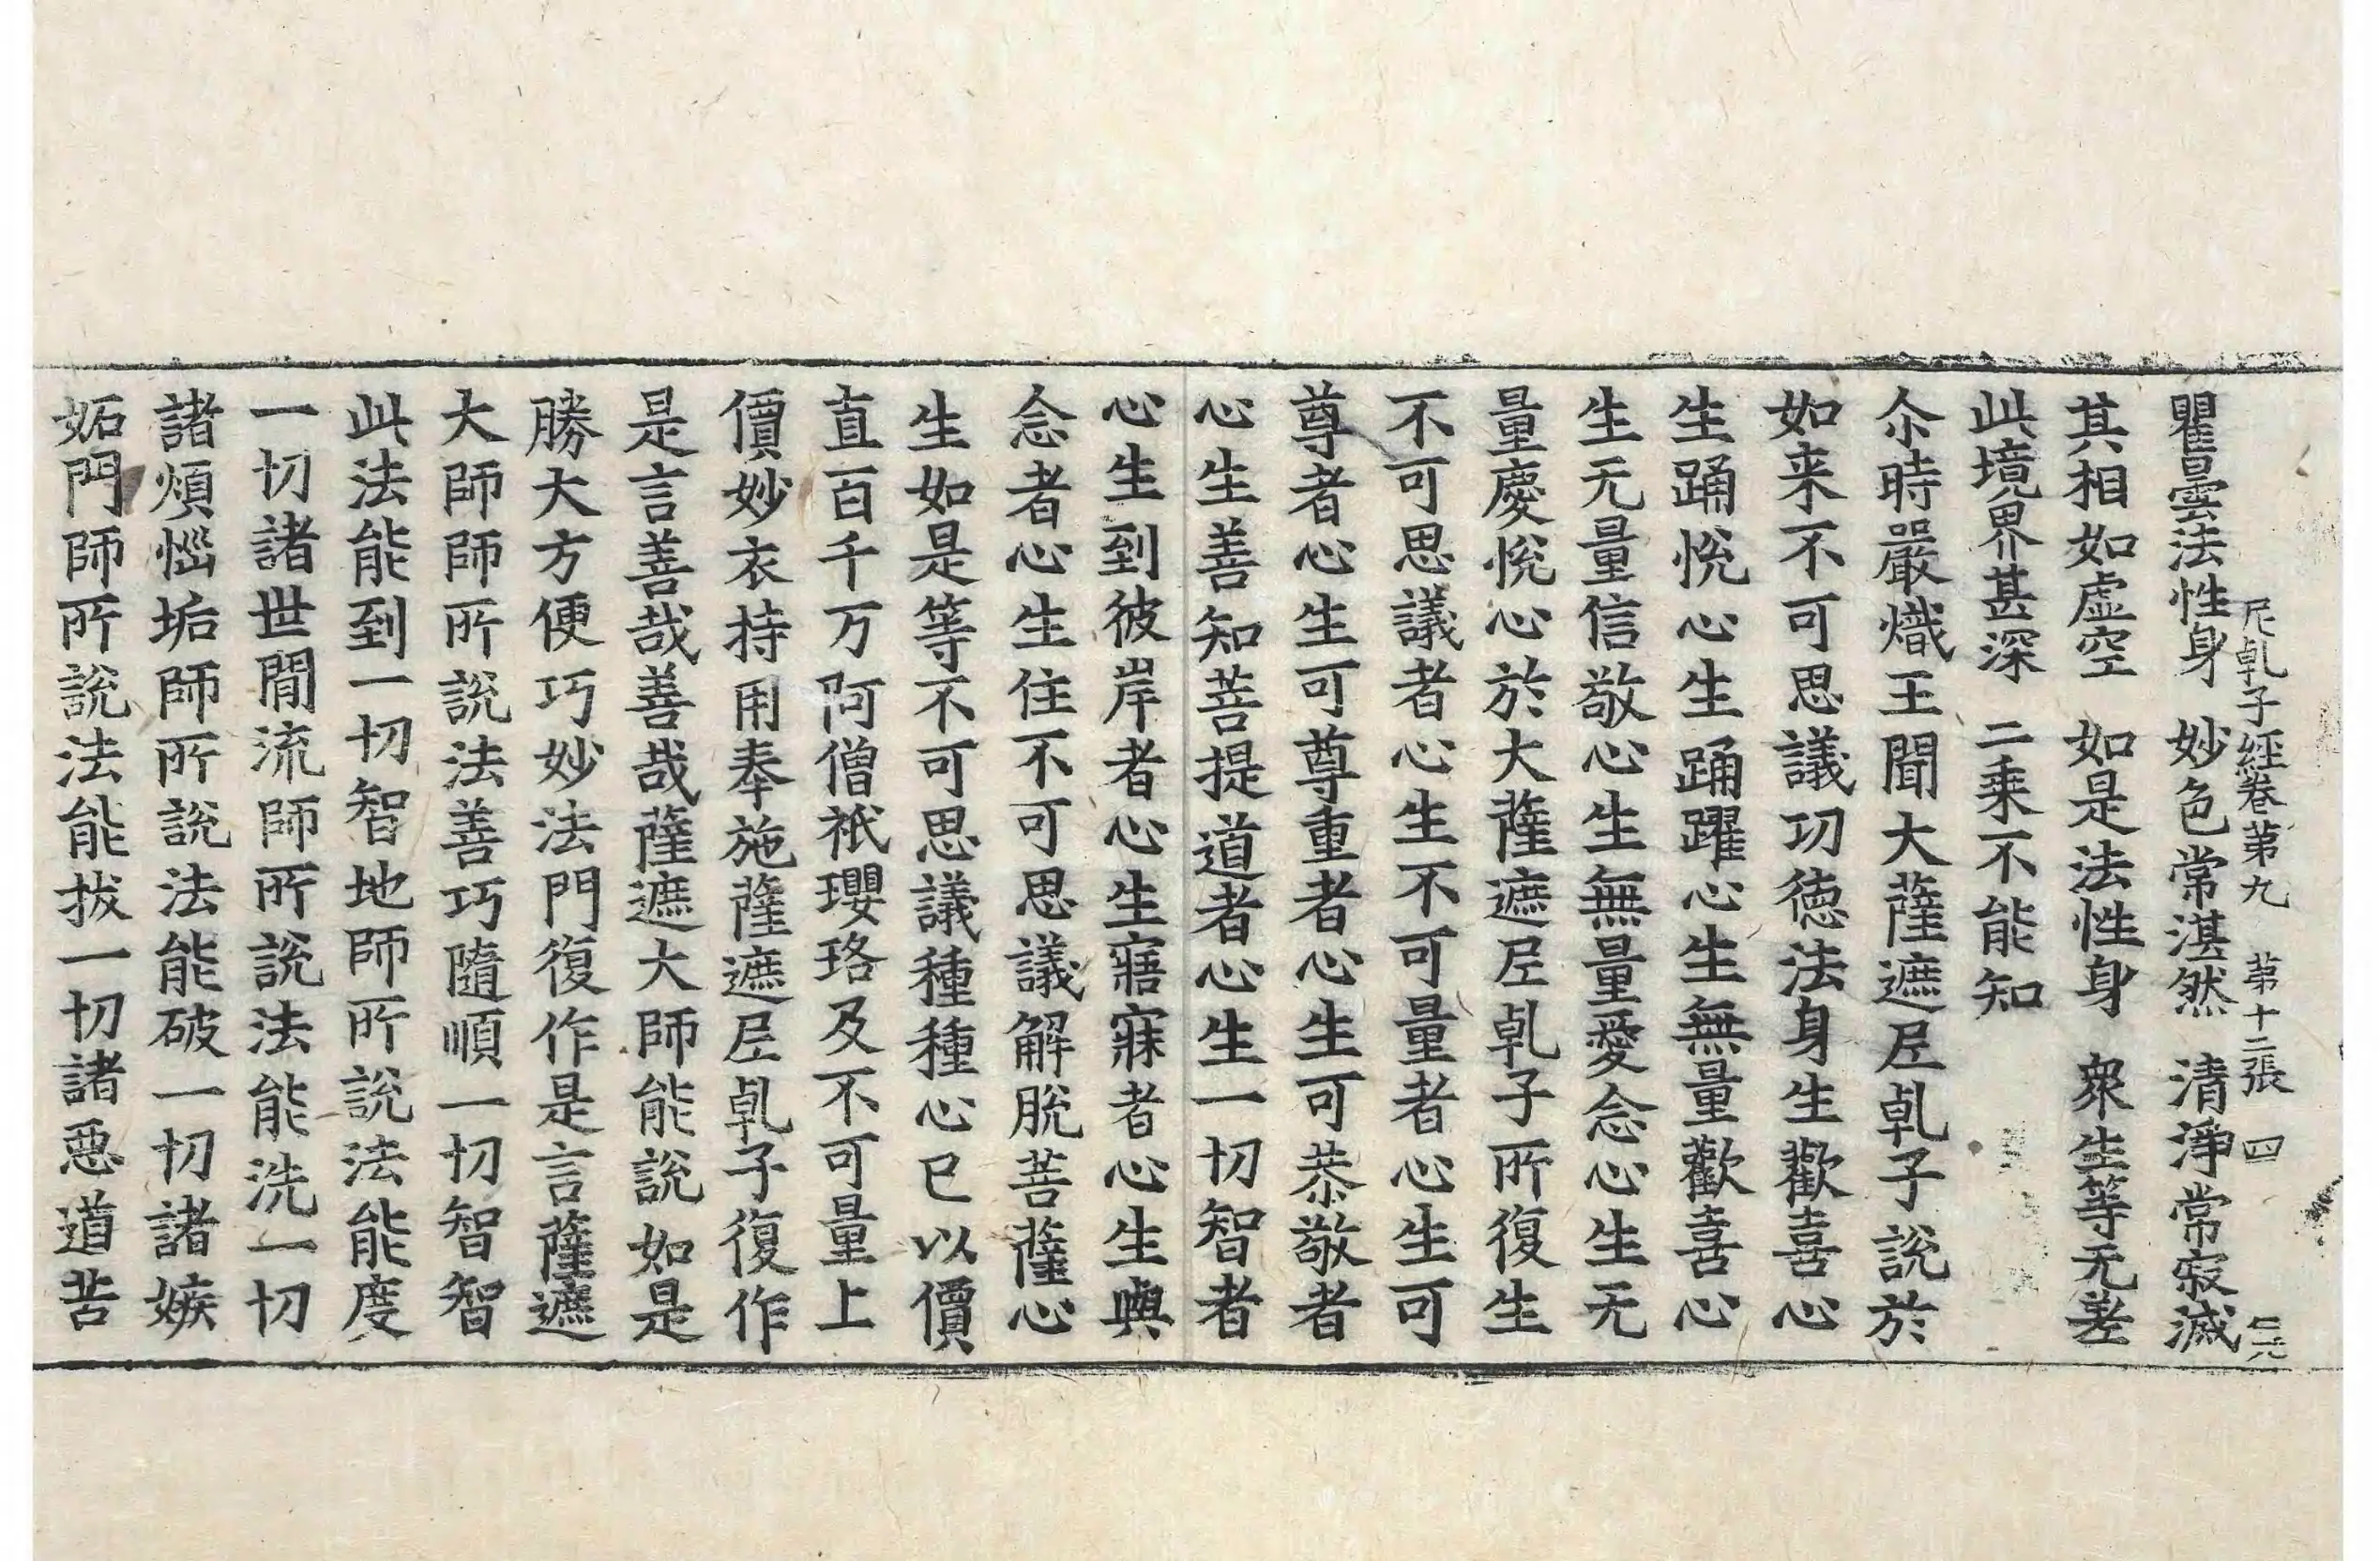 尼乹子經卷第九　第十二張　四
瞿曇法性身　妙色常湛然　清淨常寂滅
其相如虛空　如是法性身　衆生等无差
此境界甚深　二乘不能知
尒時嚴熾王聞大薩遮尼乹子說於
如来不可思議功徳法身生歡喜心
生踊悅心生踊躍心生無量歡喜心
生无量信敬心生無量愛念心生无
量慶悅心於大薩遮尼乹子所復生
不可思議者心生不可量者心生可
尊者心生可尊重者心生可恭敬者
心生善知菩提道者心生一切智者
心生到彼岸者心生寤寐者心生與
念者心生住不可思議解脫菩薩心
生如是等不可思議種種心已以價
直百千万阿僧祇瓔珞及不可量上
價妙衣持用奉施薩遮尼乹子復作
是言善哉善哉薩遮大師能說如是
勝大方便巧妙法門復作是言薩遮
大師師所說法善巧隨順一切智智
此法能到一切智地師所說法能度
一切諸世閒流師所說法能洗一切
諸煩惱垢師所說法能破一切諸嫉
妬門師所說法能拔一切諸惡道苦